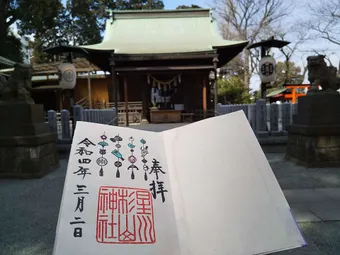 奉拝
星川
杉山
神社
令和四年
三月二日